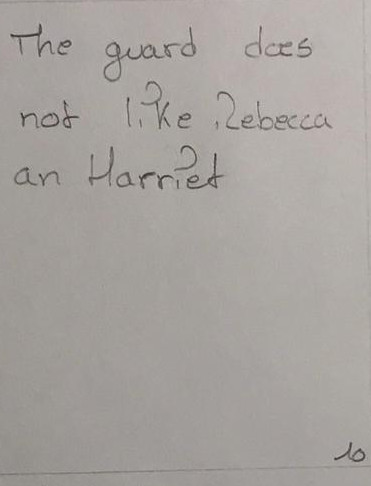 The guard does
not like Rebecca
an Harriet
10